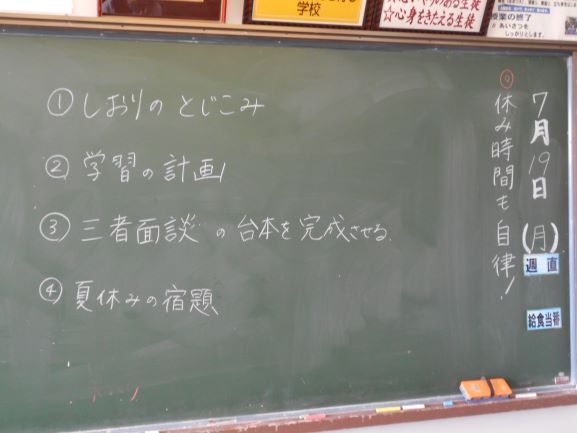 学校
☆心身をきたえる生徒
授業の終了
あいさつを
しっかりとします。
① しおりの とじこみ
② 学習の計画
③ 三者面談 の 台本を 完成させる.
④ 夏休みの宿題
7月19日(月)
週直
給食当番
休み時間も自律!